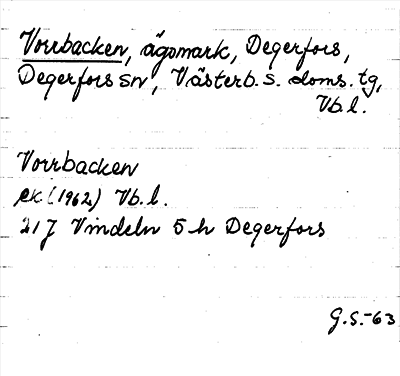 Vorrbacken, ägomark, Degerfors,
Degerfors sn, Västerb. s. doms. tg,
Vb l.
Vorrbacken
ek (1962) Vb. l.
21 J Vindeln 5 h Degerfors
G.S.-63